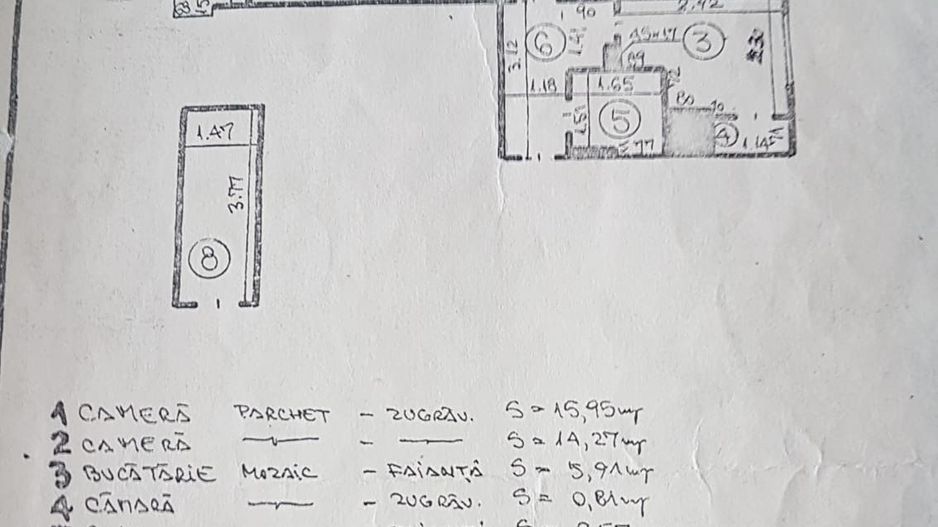 90
2.42
6
3
3.12
1.18
1.65
1.51
5
80
10
4
1.47
3.77
8
1 CAMERĂ PARCHET - ZUGRĂV. S = 15,95mp
2 CAMERĂ — - — S = 14,27mp
3 BUCĂTĂRIE MOZAIC - FAIANȚĂ S = 5,91mp
4 CĂMARĂ — - ZUGRĂV. S = 0,81mp